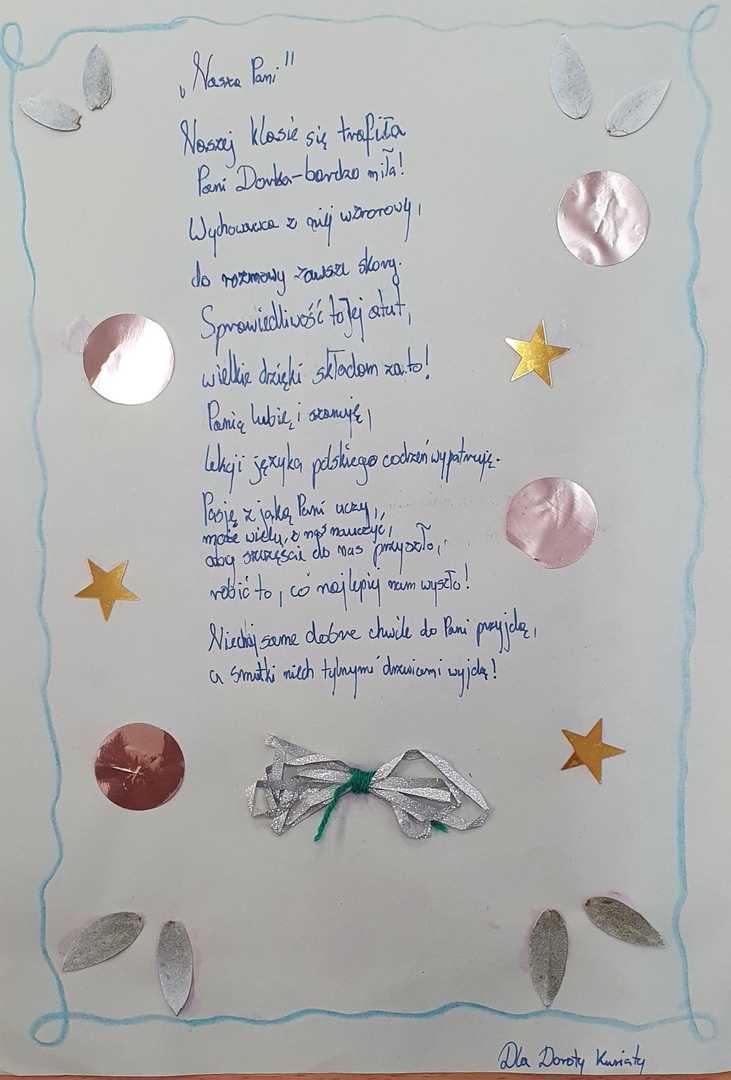 „Nasza Pani"
Naszej klasie się trafiła
Pani Dorka-bardzo miła!
Wychowawca z niej wzorowy,
do rozmowy zawsze skory.
Sprawiedliwość to Jej atut,
wielkie dzięki składam za to!
Panią lubię, i szanuję,
lekcji języka polskiego codzeń wypatruję.
Pasję z jaką Pani uczy,
może wielu, z nas nauczyć,
aby szczęście do nas przyszło,
robić to, co najlepiej nam wyszło!
Niechaj same dobre chwile do Pani przyjdą,
a smutki niech tylnymi drzwiami wyjdą!
Dla Doroty Kwiaty